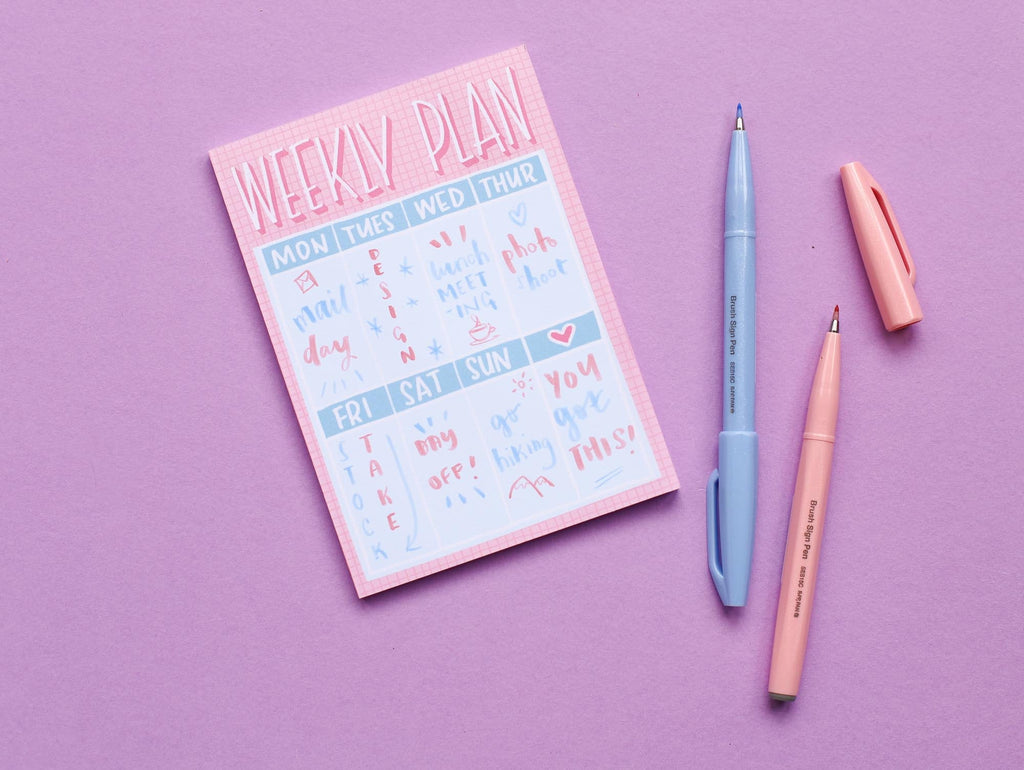 WEEKLY PLAN
MON TUES WED THUR
mail
day
DESIGN
lunch
MEET
-ING
photo
shoot
FRI SAT SUN
STOCK
TAKE
DAY
OFF!
go
hiking
YOU
got
THIS!
Brush Sign Pen
Brush Sign Pen